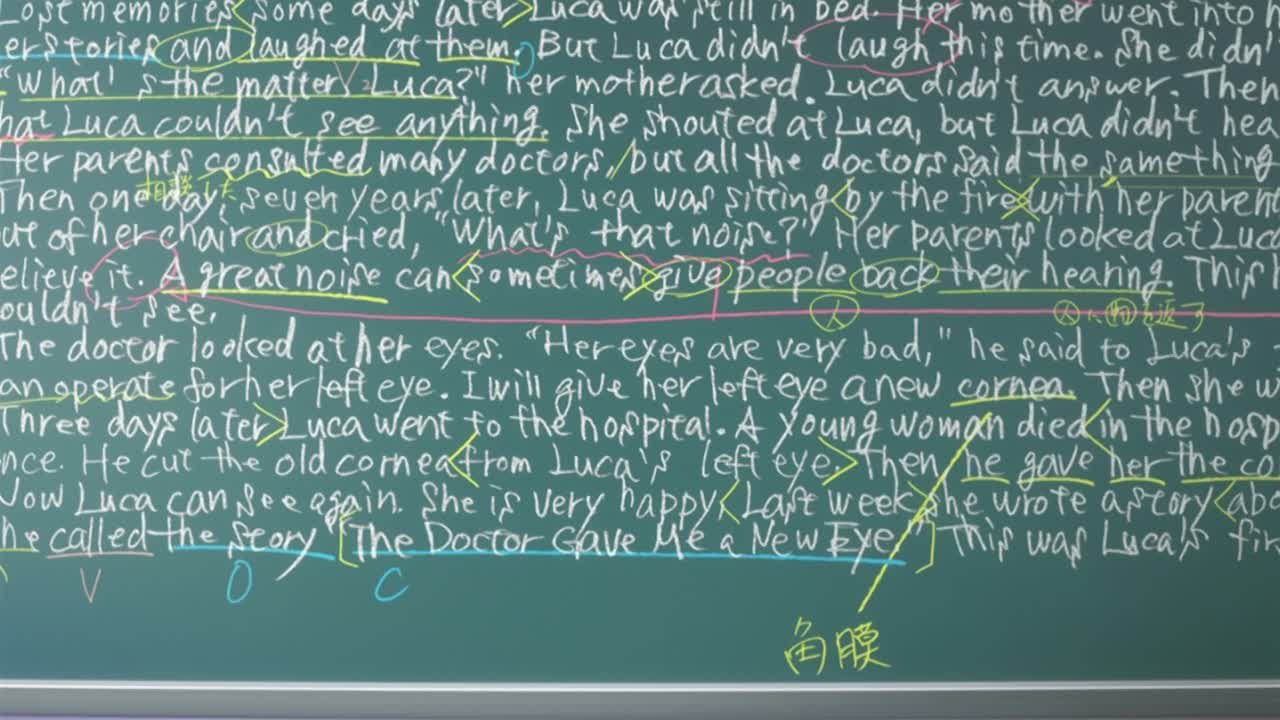 Lost memories some days later Luca was still in bed. Her mother went into h
er stories and laughed at them. But Luca didn't laugh this time. She didn'
O
"What's the matter, Luca?" her mother asked. Luca didn't answer. Then
V
hat Luca couldn't see anything. She shouted at Luca, but Luca didn't hea
Her parents consulted many doctors, but all the doctors said the same thing
相談した
Then one day, seven years later, Luca was sitting by the fire with her parent
out of her chair and cried, "What's that noise?" Her parents looked at Luc
elieve it. A great noise can sometimes give people back their hearing. This h
人
人に物を返す
ouldn't see.
The doctor looked at her eyes. "Her eyes are very bad," he said to Luca's
an operate for her left eye. I will give her left eye a new cornea. Then she w
Three days later Luca went to the hospital. A young woman died in the hosp
nce. He cut the old cornea from Luca's left eye. Then he gave her the co
Now Luca can see again. She is very happy. Last week she wrote a story abo
he called the story [The Doctor Gave Me a New Eye] This was Luca's fir
V O C
角膜